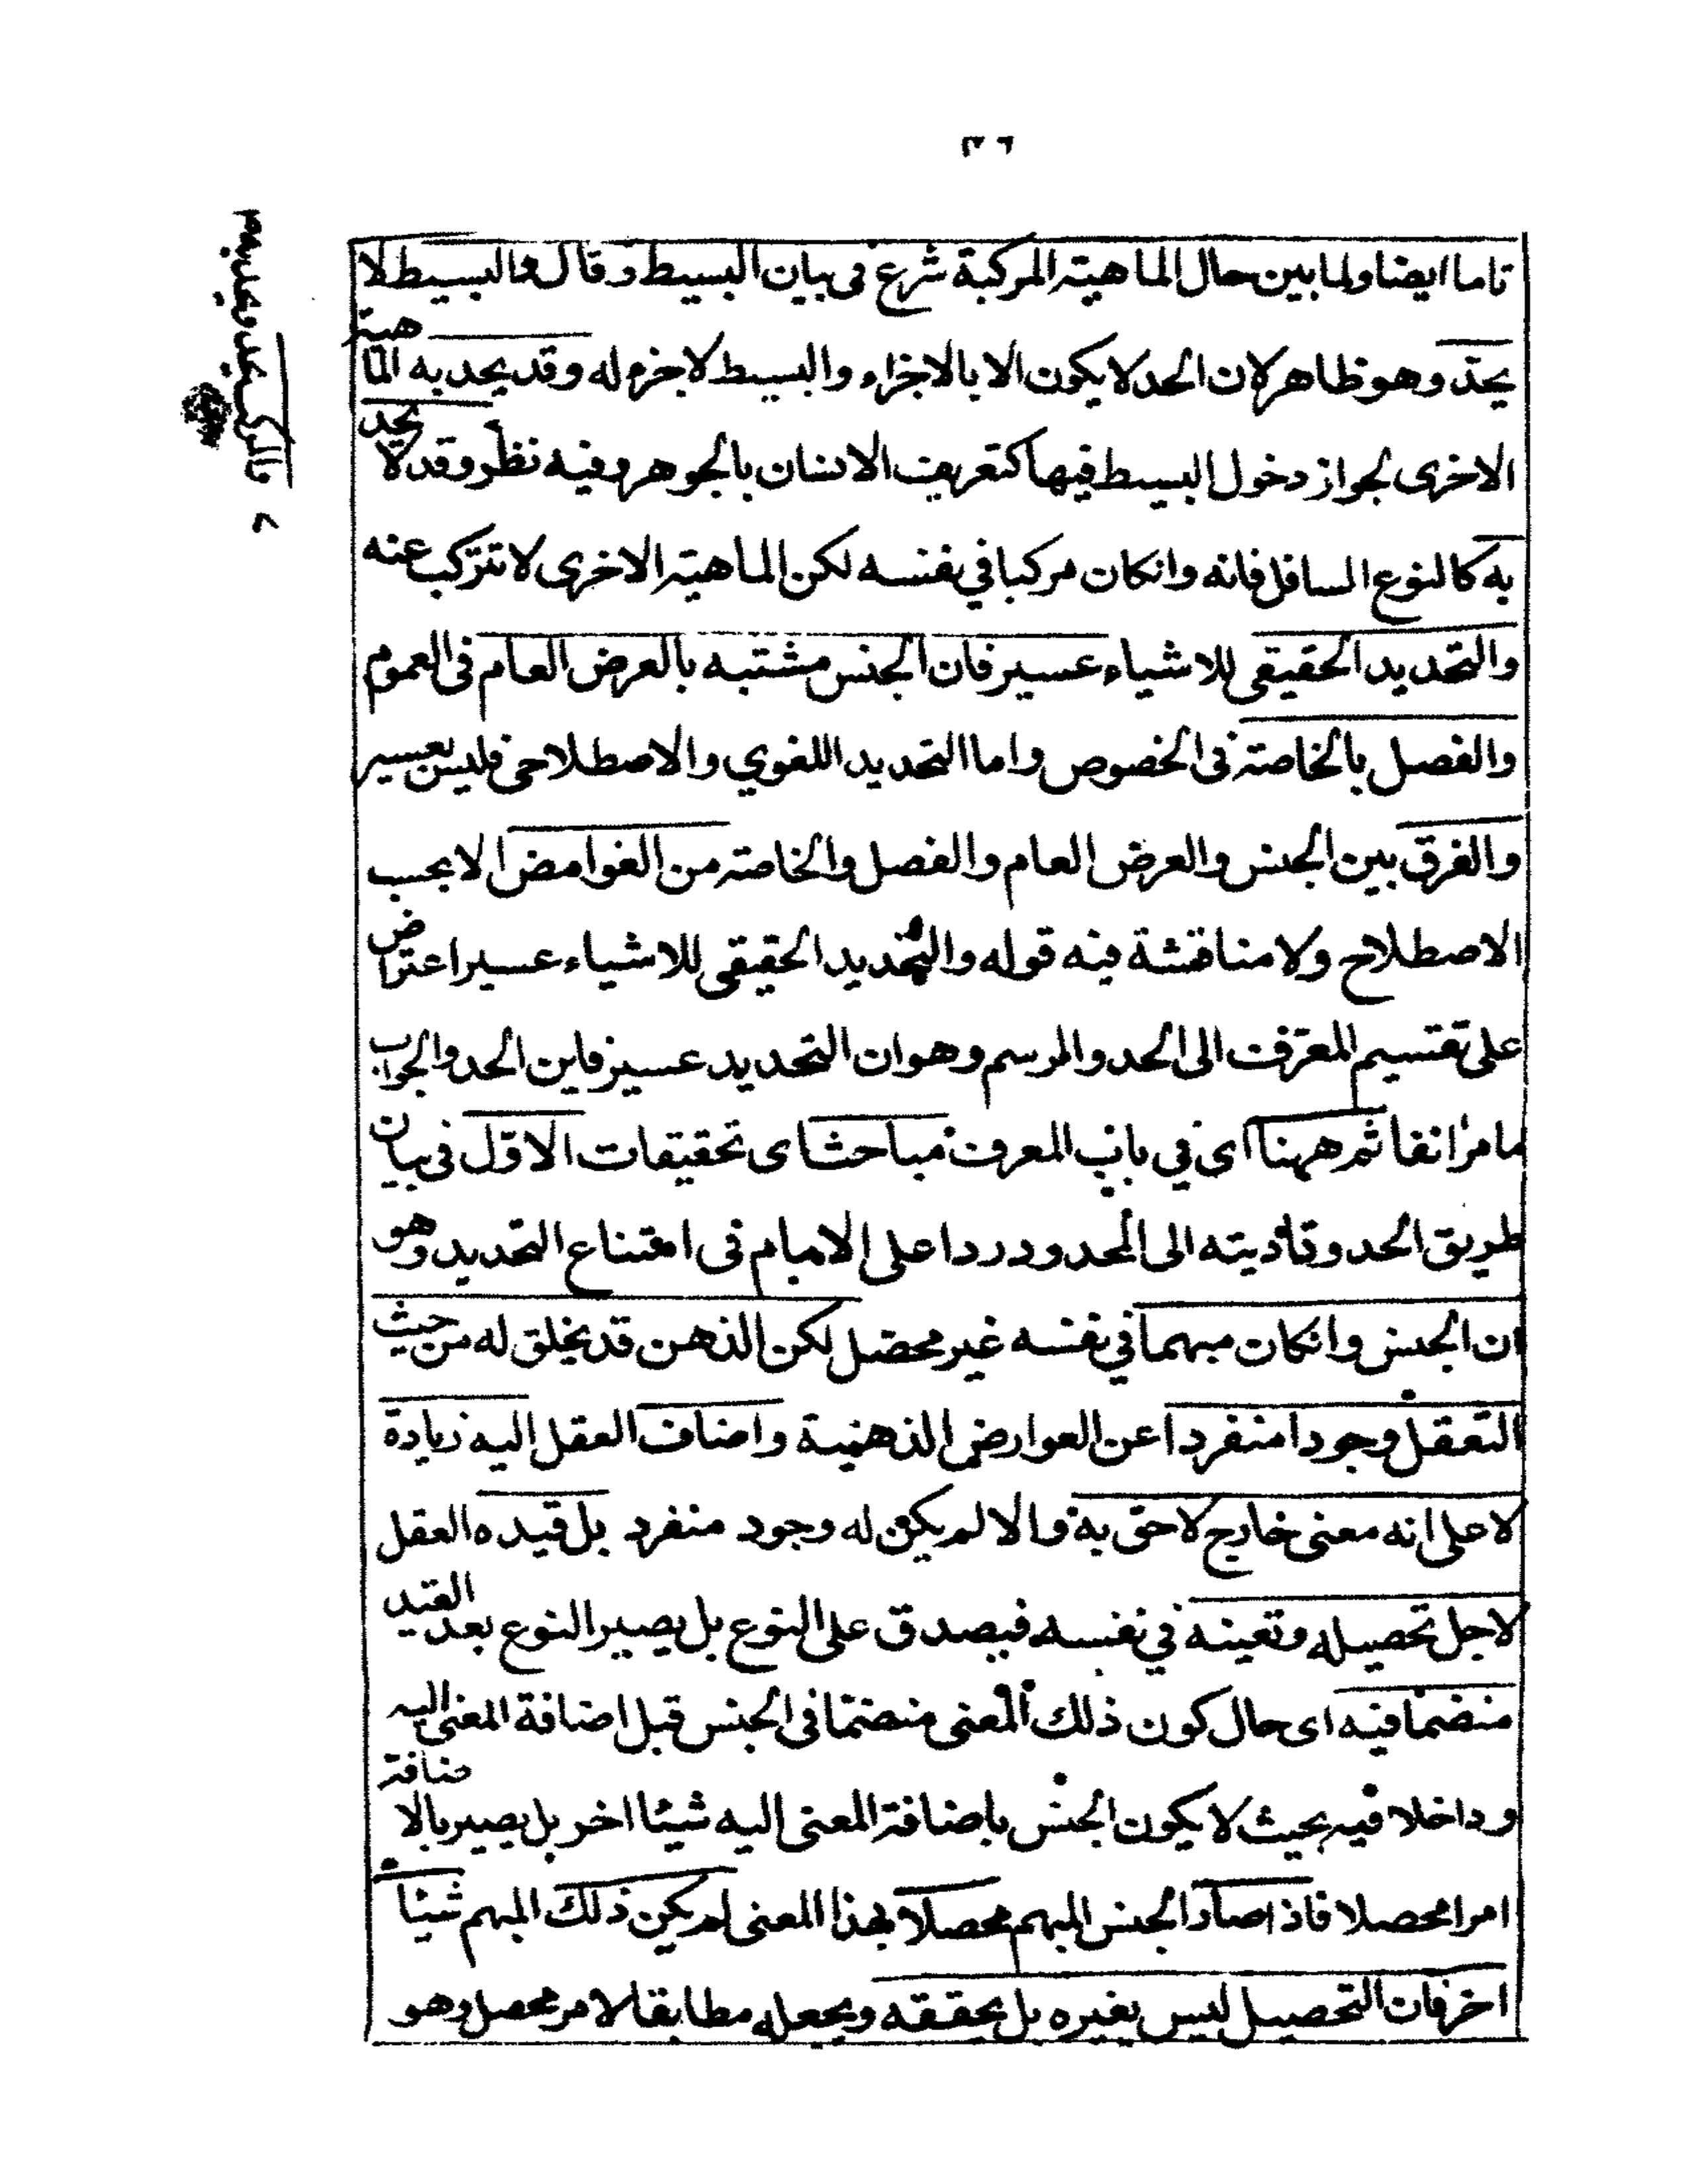 ٣٦
تاما ايضا ولما بين حال الماهية المركبة شرع في بيان البسيط وقال والبسيط لا
يحدّ وهو ظاهر لان الحد لا يكون الا بالاجزاء والبسيط لا جزء له وقد يحد به الماهية
الاخرى لجواز دخول البسيط فيها كتعريف الانسان بالجوهر وفيه نظر وقد لا يحد
به كالنوع السافل فانه وانكان مركبا في نفسه لكن الماهية الاخرى لا تتركب عنه
والتحديد الحقيقي للاشياء عسير فان الجنس مشتبه بالعرض العام في العموم
والفصل بالخاصة في الخصوص واما التحديد اللغوي والاصطلاحي فليس بعسير
والفرق بين الجنس والعرض العام والفصل والخاصة من الغوامض الا بحسب
الاصطلاح ولا مناقشة فيه قوله والتحديد الحقيقي للاشياء عسير اعتراض
على تقسيم المعرّف الى الحد والرسم وهو ان التحديد عسير فاين الحد والجواب
ما مر انفا ثم ههنا اى في باب المعرف مباحث اى تحقيقات الاوّل في بيان
طريق الحد وتأديته الى المحدود ردا على الامام في امتناع التحديد وهو
ان الجنس وانكان مبهما في نفسه غير محصل لكن الذهن قد يخلق له من حيث
التعقل وجودا منفردا عن العوارض الذهنية واضاف العقل اليه زيادة
لا على انه معنى خارج لاحق به والا لم يكن له وجود منفرد بل قيده العقل
لاجل تحصيله وتعينه في نفسه فيصدق على النوع بل يصير النوع بعد القيد
منضما فيه اى حال كون ذلك المعنى منضما في الجنس قبل اضافة المعنى اليه
وداخلا فيه بحيث لا يكون الجنس باضافة المعنى اليه شيئا اخر بل يصير بالاضافة
امرا محصلا فاذا صار الجنس المبهم محصلا بهذا المعنى لم يكن ذلك المبهم شيئا
اخر فان التحصيل ليس يغيره بل يحققه ويجعله مطابقا لامر محصل وهو